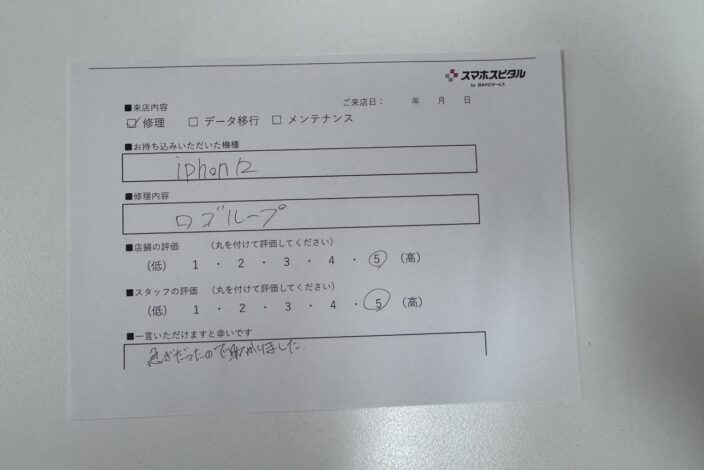 スマホスピタル
by 日本PCサービス
■来店内容
ご来店日： 年 月 日
☑修理 □ データ移行 □ メンテナンス
■お持ち込みいただいた機種
iphon12
■修理内容
ロゴループ
■店舗の評価 （丸を付けて評価してください）
（低） 1 ・ 2 ・ 3 ・ 4 ・ 5 （高）
■スタッフの評価 （丸を付けて評価してください）
（低） 1 ・ 2 ・ 3 ・ 4 ・ 5 （高）
■一言いただけますと幸いです
急ぎだったので助かりました.